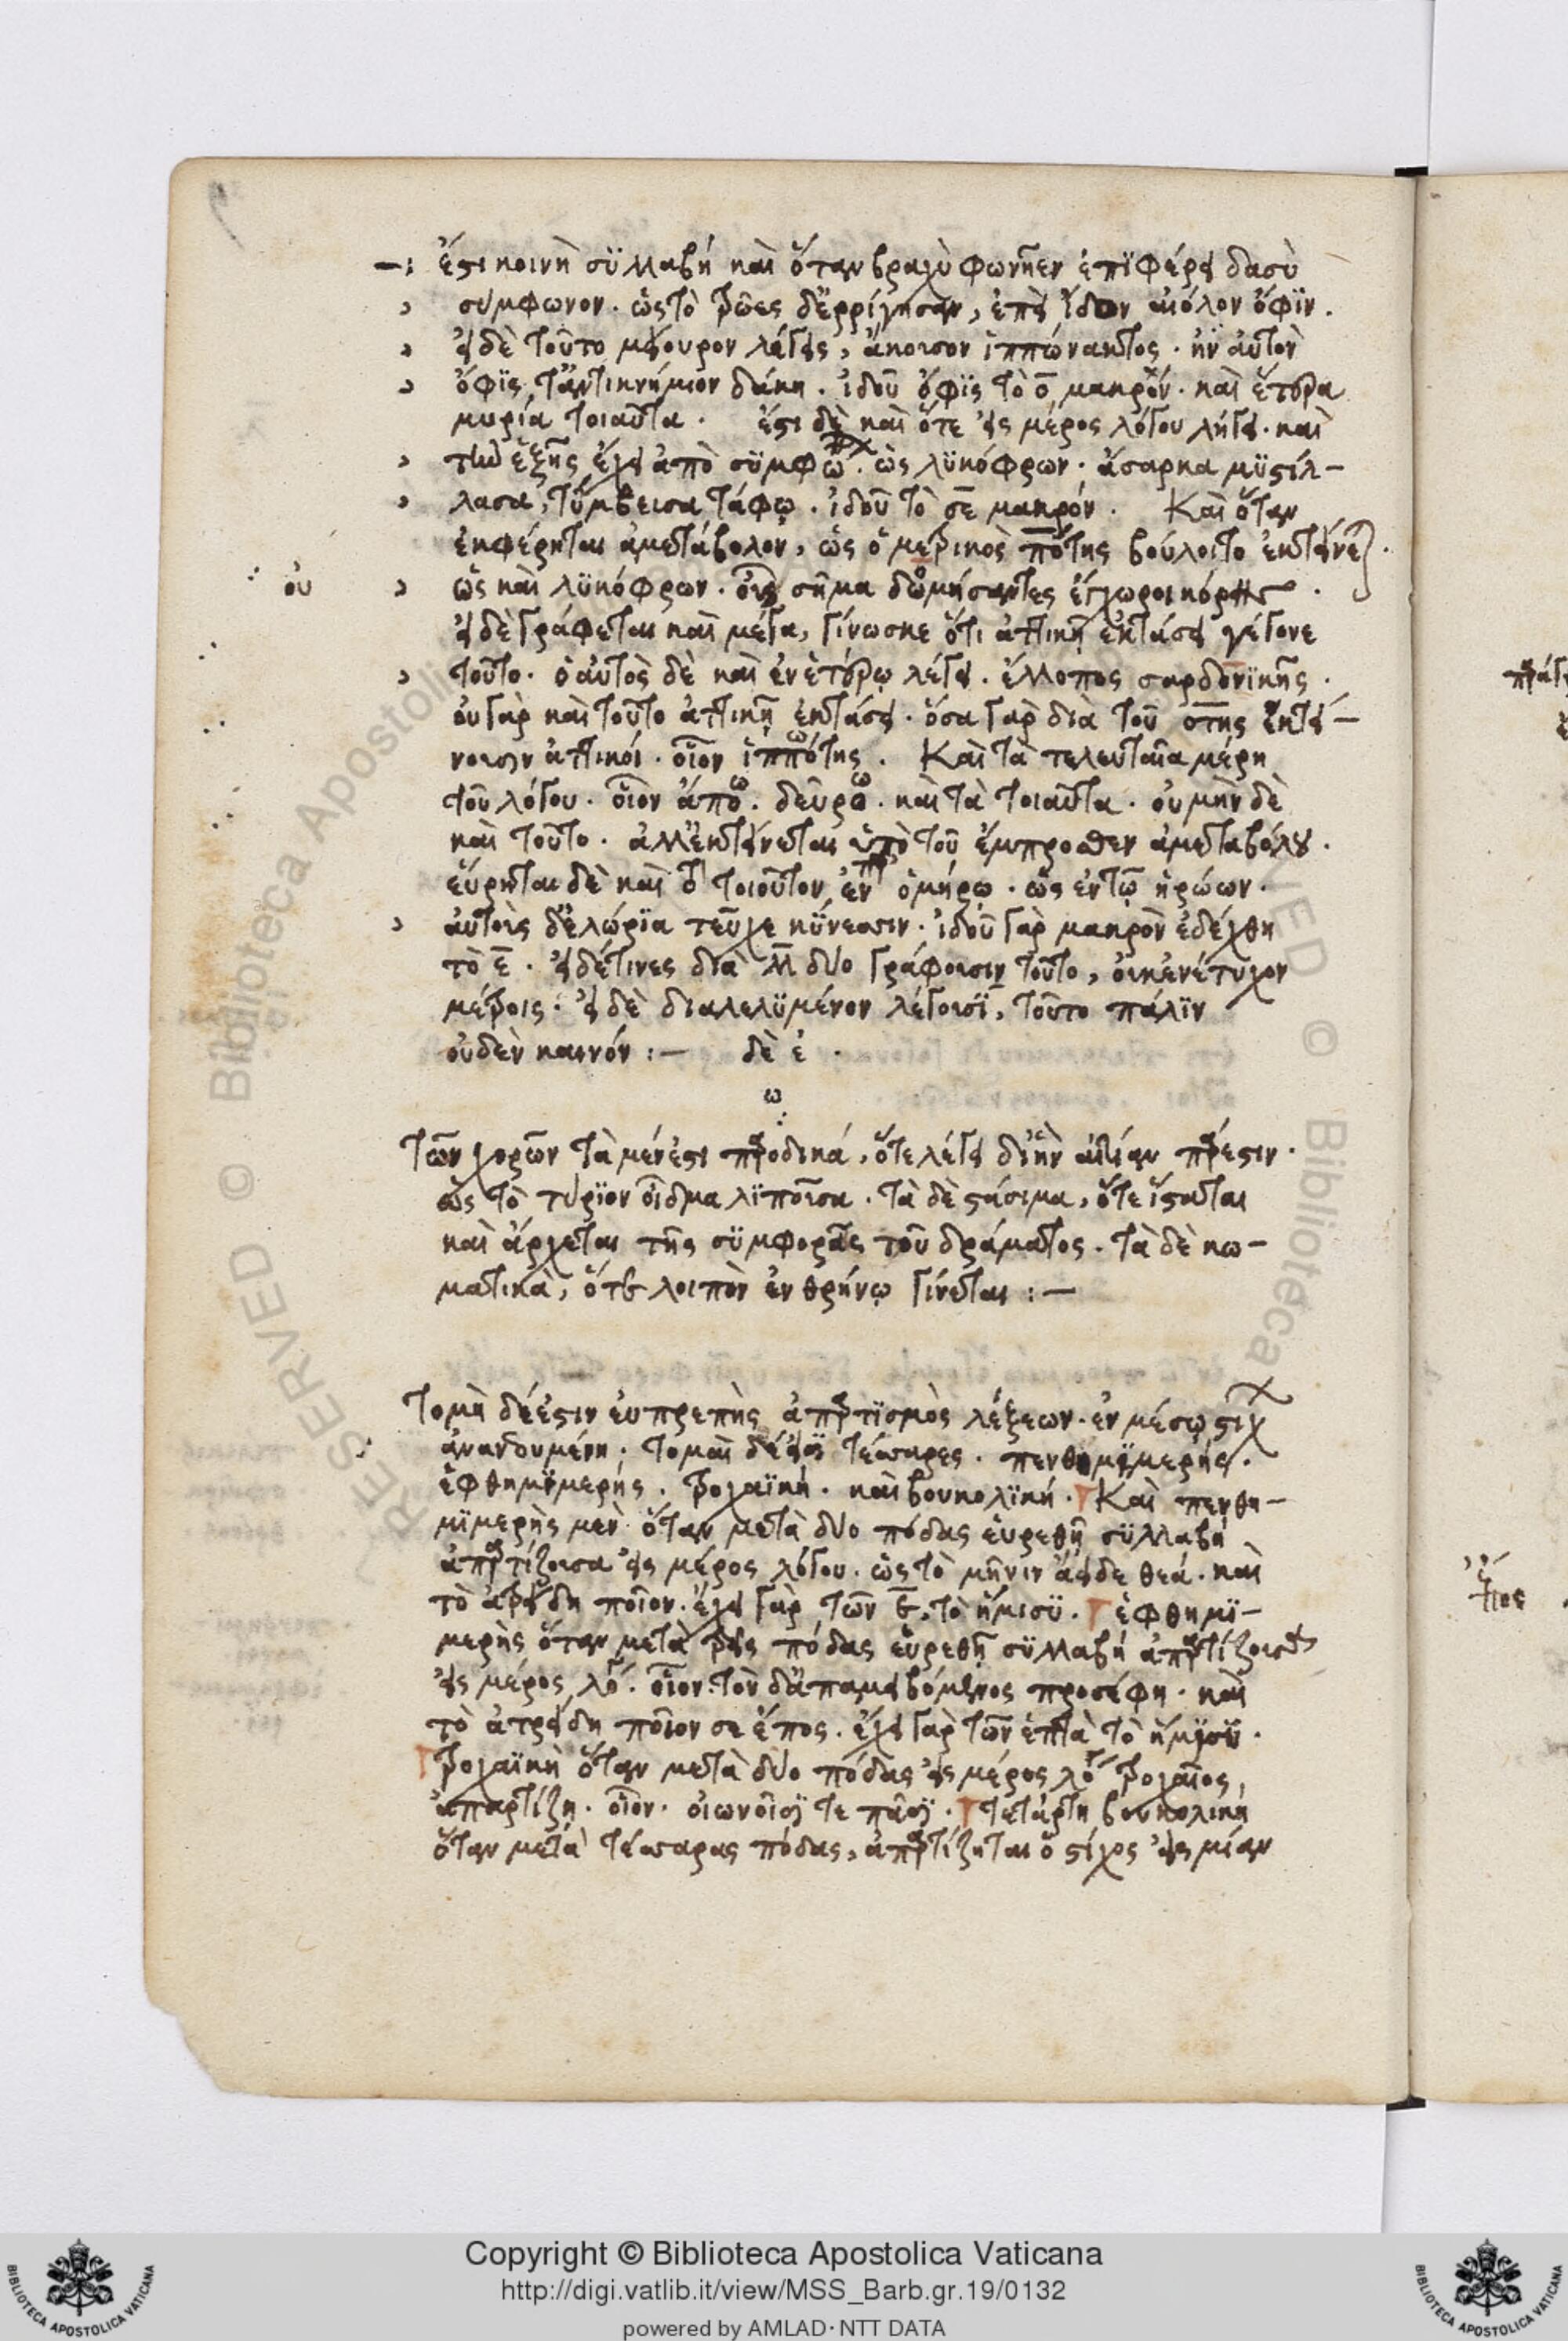 ἔστι κοινὴ συλλαβὴ καὶ ὅταν βραχὺ φωνῆεν ἐπιφέρει δασὺ
σύμφωνον. ὡς τὸ τρῶες δ' ἐρρίγησαν, ἐπεὶ ἴδον αἰόλον ὄφιν.
εἰ δὲ τοῦτο μείουρον λέγεις, ἄκουσον ἱππώνακτος. ἢν αὐτὸν
ὄφις τἀντικνήμιον δάκη. ἰδοῦ ὄφις τὸ ο μακρόν. καὶ ἕτερα
μυρία τοιαῦτα. ἔστι δὲ καὶ ὅτε εἰς μέρος λόγου λήγει. καὶ
τὴν ἑξῆς ἔχει ἀπὸ συμφώ. ὡς λυκόφρων. ἄσαρκα μυστίλ-
λασα, τύμβευσα τάφῳ. ἰδοῦ τὸ σα μακρόν. Καὶ ὅταν
ἐκφέρηται ἀμετάβολον, ὡς ὁ μετρικὸς πότης βούλοιτο ἐκτείνε.
οὐ
ὡς καὶ λυκόφρων. οἷς σῆμα δωμήσαντες ἔγχωροι κόρης.
εἰ δὲ γράφεται καὶ μέγα, γίνωσκε ὅτι ἀττικῇ ἐκτάσει γέγονε
τοῦτο. ὁ αὐτὸς δὲ καὶ ἐν ἑτέρῳ λέγει. ἔλλοπος σαρδονικῆς.
οὐ γὰρ καὶ τοῦτο ἀττικῇ ἐκτάσει. ὅσα γὰρ διὰ τοῦ οτης ἐκτεί-
νουσιν ἀττικοί. οἷον ἱππότης. Καὶ τὰ τελευταῖα μέρη
τοῦ λόγου. οἷον ἄπο. δεῦρο. καὶ τὰ τοιαῦτα. οὐ μὴν δὲ
καὶ τοῦτο. ἀλλ' ἐκτείνεται ὑπὸ τοῦ ἔμπροσθεν ἀμεταβόλου.
εὕρηται δὲ καὶ τὸ τοιοῦτον ἐν ὁμήρῳ. ὡς ἐν τῷ ἡρώων.
αὐτοὺς δ' ἑλώρια τεῦχε κύνεσσιν. ἰδοῦ γὰρ μακρὸν ἐδέχθη
τὸ ε. εἰ δέ τινες διὰ λλ δύο γράφουσιν τοῦτο, οὐκ ἐνέτυχον
μέτροις. εἰ δὲ διαλελυμένον λέγουσι, τοῦτο πάλιν
οὐδὲν καινόν :— δὲ ἑ.
ω
Τῶν χορῶν τὰ μέν ἐστι παροδικά, ὅτε λέγει δι' ἣν αἰτίαν πάρεστιν.
ὡς τὸ τύριον οἶδμα λιποῦσα. τὰ δὲ στάσιμα, ὅτε ἵσταται
καὶ ἄρχεται τῆς συμφορᾶς τοῦ δράματος. τὰ δὲ κω-
ματικὰ, ὅτε λοιπὸν ἐν θρήνῳ γίνεται :—
Τομὴ δέ ἐστιν εὐπρεπὴς ἀπαρτισμὸς λέξεων. ἐν μέσῳ στίχ
ἀναδουμένη. τομαὶ δέ εἰσι τέσσαρες. πενθημιμερής.
ἑφθημιμερής. τροχαϊκή. καὶ βουκολική. Καὶ πενθη-
μιμερὴς μὲν ὅταν μετὰ δύο πόδας εὑρεθῇ συλλαβὴ
ἀπαρτίζουσα εἰς μέρος λόγου. ὡς τὸ μῆνιν ἄειδε θεά. καὶ
τὸ ἀτρείδη ποῖον. ἔχει γὰρ τῶν ε, τὸ ἥμισυ. ἑφθημι-
μερὴς ὅταν μετὰ τρεῖς πόδας εὑρεθῇ συλλαβὴ ἀπαρτίζουσα
εἰς μέρος λό. οἷον. τὸν δ' ἀπαμειβόμενος προσέφη. καὶ
τὸ ἀτρείδη ποῖον σε ἔπος. ἔχει γὰρ τῶν ἑπτὰ τὸ ἥμισυ.
Τροχαϊκὴ ὅταν μετὰ δύο πόδας εἰς μέρος λό τροχαῖος,
ἀπαρτίζῃ. οἷον. οἰωνοῖσί τε πᾶσι. τετάρτη βουκολικὴ
ὅταν μετὰ τέσσαρας πόδας, ἀπαρτίζηται ὁ στίχος εἰς μίαν
Copyright © Biblioteca Apostolica Vaticana
http://digi.vatlib.it/view/MSS_Barb.gr.19/0132
powered by AMLAD · NTT DATA